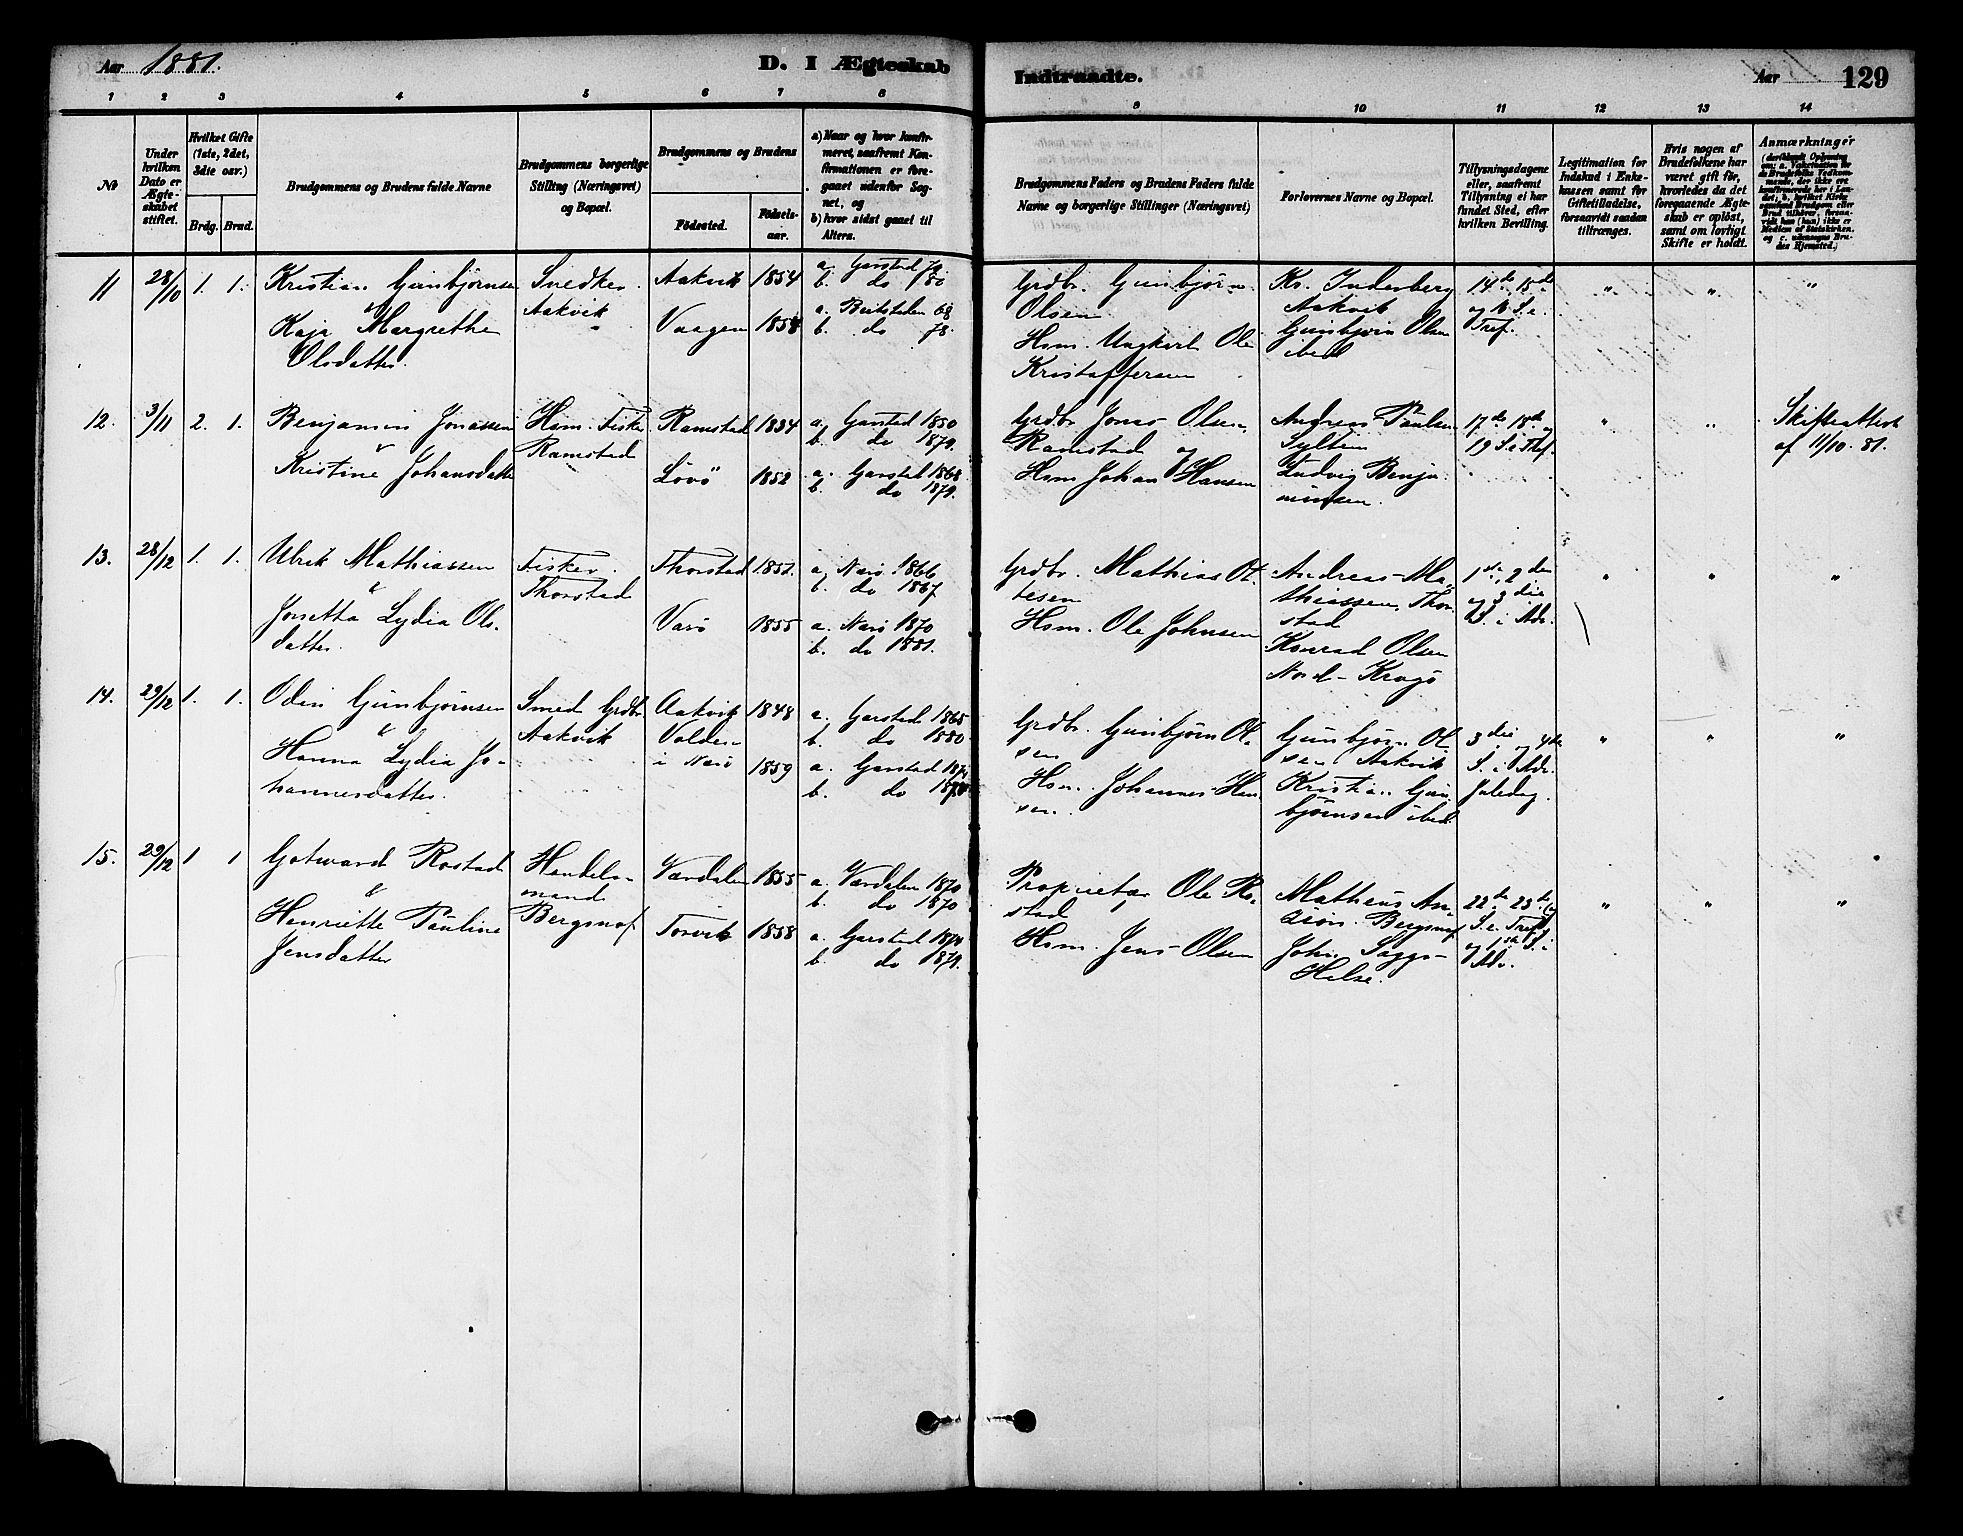 Aar 1881.
D. I Ægteskab
Indtraadte.
Aar
129
1 2 3 4 5 6 7 8 9 10 11 12 13 14
№
Under hvilken Dato er Ægteskabet stiftet.
Hvilket Gifte (1ste, 2det, 3die osv.)
Brdg. Brud.
Brudgommens og Brudens fulde Navne
Brudgommens borgerlige Stilling (Næringsvei) og Bopæl.
Brudgommens og Brudens
Fødested.
Fødselsaar.
a) Naar og hvor konfirmeret, saafremt Konfirmationen er foregaaet udenfor Sognet, og
b) hvor sidst gaaet til Alters.
Brudgommens Faders og Brudens Faders fulde Navne og borgerlige Stillinger (Næringsvei)
Forlovernes Navne og Bopæl.
Tillysningsdagene eller, saafremt Tillysning ei har fundet Sted, efter hvilken Bevilling.
Legitimation for Indskud i Enkekassen samt for Giftetilladelse, forsaavidt saadan tiltrænges.
Hvis nogen af Brudefolkene har været gift før, hvorledes da det foregaaende Ægteskab er opløst, samt om lovligt Skifte er holdt.
Anmærkninger
11 28/10 1. 1. Kristian Gunbjørnsen
&
Kaja Margrethe
Olsdatter.
Snedker
Aakvik
Aakvik 1854
Vaagen 1858
a. Garstad 70
b. do 80
a. Beitstaden 68
b. do 78.
Grdbr. Gunbjørn
Olsen
Hsm. Ole
Kristoffersen
Kr. Inderberg
Aakvik
Gunbjørn Olsen
ibed
14de 15de
og 16 S. e.
Tref.
" " "
12. 3/11 2. 1. Benjamin Jonassen
&
Kristine Johansdatter
Hsm. Fisker
Ramstad
Ramstad 1834
Lövö 1852
a. Garstad 1850
b. do 1879.
a. Garstad 1868
b. do 1879.
Grdbr Jonas Olsen
Ramstad og
Hsm Johan Hansen
Andreas Paulsen
Sylten
Ludvig Benja
minsen.
17de 18de og
19 S. e Tref.
" "
Skifteattest
af 11/10. 81.
13. 28/12 1. 1. Ulrik Mathiassen
&
Josetta Lydia Ols-
datter.
Fisker.
Thorstad
Thorstad 1851.
Varö 1855
a. Nærö 1866
b. do 1867
a. Nærö 1870
b. do 1881.
Grdbr. Mathias Ot-
tesen
Hsm. Ole Johnsen
Andreas Ma-
thiassen, Thor-
stad
Konrad Olsen
Nord-Krogö
1ste, 2den
og 3die
S. i Adv.
" " "
14. 29/12 1. 1. Odin Gunbjørnsen
&
Hanna Lydia Jo-
hannesdatter.
Smed Grdbr.
Aakvik
Aakvik 1848
Volden
i Nærö 1859
a. Garstad 1865
b. do 1880
a. Garstad
b. do
Grdbr. Gunbjørn Ol-
sen
Hsm. Johannes Han-
sen.
Gunbjørn Ol-
sen Aakvik
Kristian Gun-
bjørnsen ibed.
3die og 4de
S. i Adv.
Juledag.
" " "
15. 29/12 1 1 Gotvard Rostad
&
Henriette Pauline
Jensdatter
Handels-
mand
Bergsnof
Værdalen 1855
Torvik 1858
a. Værdalen 1870
b. do 1870
a. Garstad 1874
b. do 1879.
Proprietær Ole Ro-
stad
Hsm. Jens Olsen
Mathæus An-
Bergsnof
John Saggo-
Helse.
22de 23de
S. e. Tref.
og 1ste S. i
Adv.
" " "